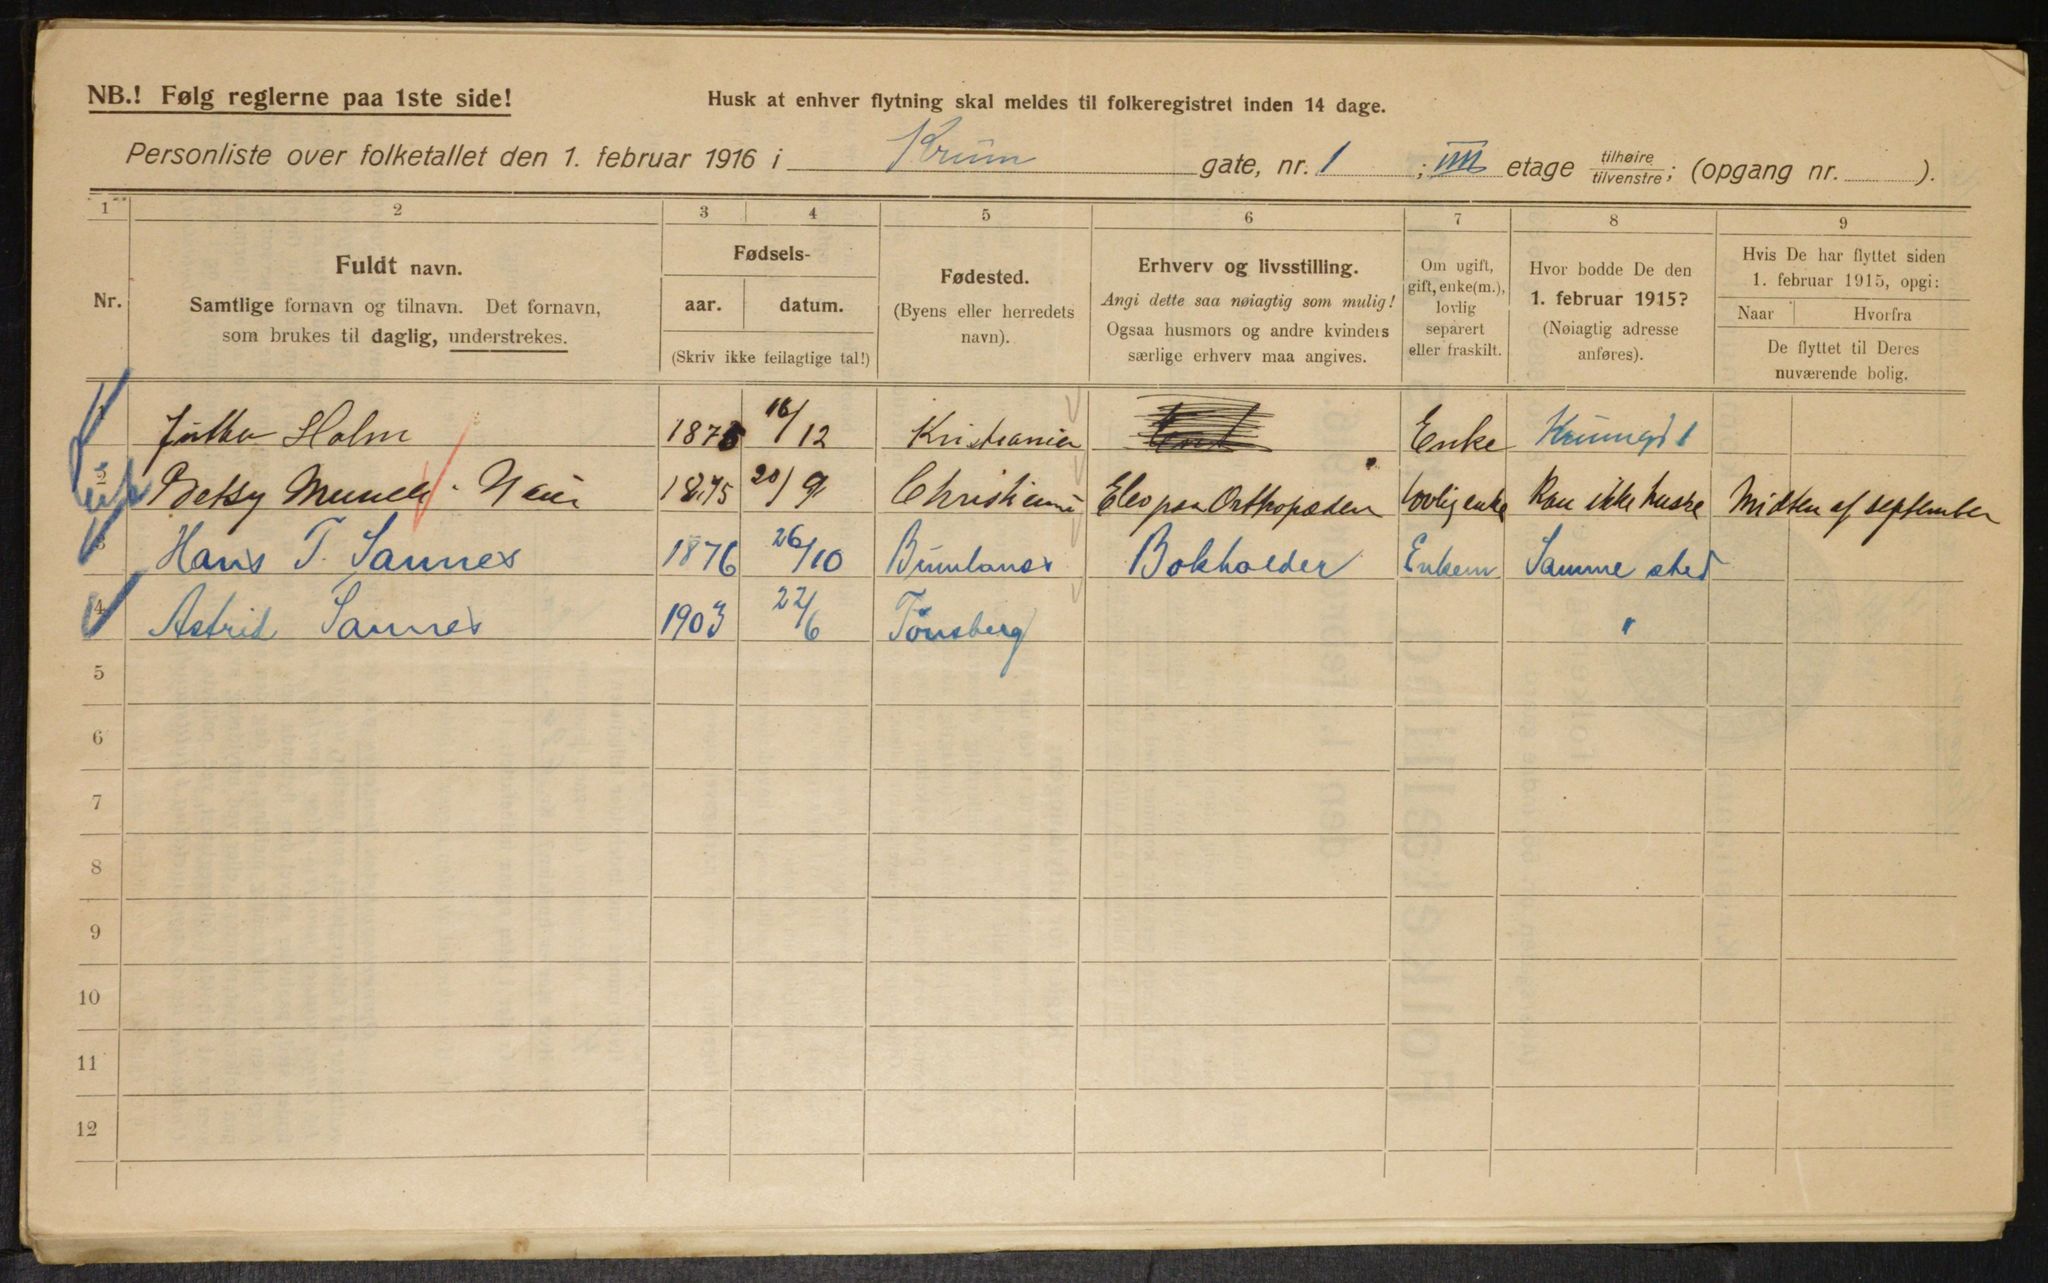 NB.! Følg reglerne paa 1ste side!
Husk at enhver flytning skal meldes til folkeregistret inden 14 dage.
Personliste over folketallet den 1. februar 1916 i Krum gate, nr. 1 ; IIII etage tilhøire tilvenstre; (opgang nr. ).
1 2 3 4 5 6 7 8 9
Nr.
Fuldt navn.
Samtlige fornavn og tilnavn. Det fornavn,
som brukes til daglig, understrekes.
Fødsels-
aar. datum.
(Skriv ikke feilagtige tal!)
Fødested.
(Byens eller herredets
navn).
Erhverv og livsstilling.
Angi dette saa nøiagtig som mulig!
Ogsaa husmors og andre kvinders
særlige erhverv maa angives.
Om ugift,
gift, enke(m.),
lovlig
separert
eller fraskilt.
Hvor bodde De den
1. februar 1915?
(Nøiagtig adresse
anføres).
Hvis De har flyttet siden
1. februar 1915, opgi:
Naar Hvorfra
De flyttet til Deres
nuværende bolig.
Holm 1876 16/12 Kristiania Enke Krumgt 1
2 Betsy Munch 1875 20/9 Christiania Elev paa Orthopæden lovlig enke Kan ikke huske Midten af september
3 Hans T. Sannes 1876 26/10 Bokholder Enkem Samme sted
4 Astrid Sannes 1903 22/6 Tönsberg "
5
6
7
8
9
10
11
12